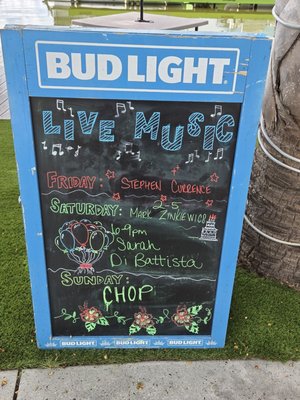 BUD LIGHT.
LIVE MUSIC
FRIDAY: STEPHEN CURRENCE
SATURDAY: 2-5
MARK ZINKIEWICZ
6-9pm
Sarah
Di Battista
SUNDAY:
CHOP
BUD LIGHT BUD LIGHT BUD LIGHT